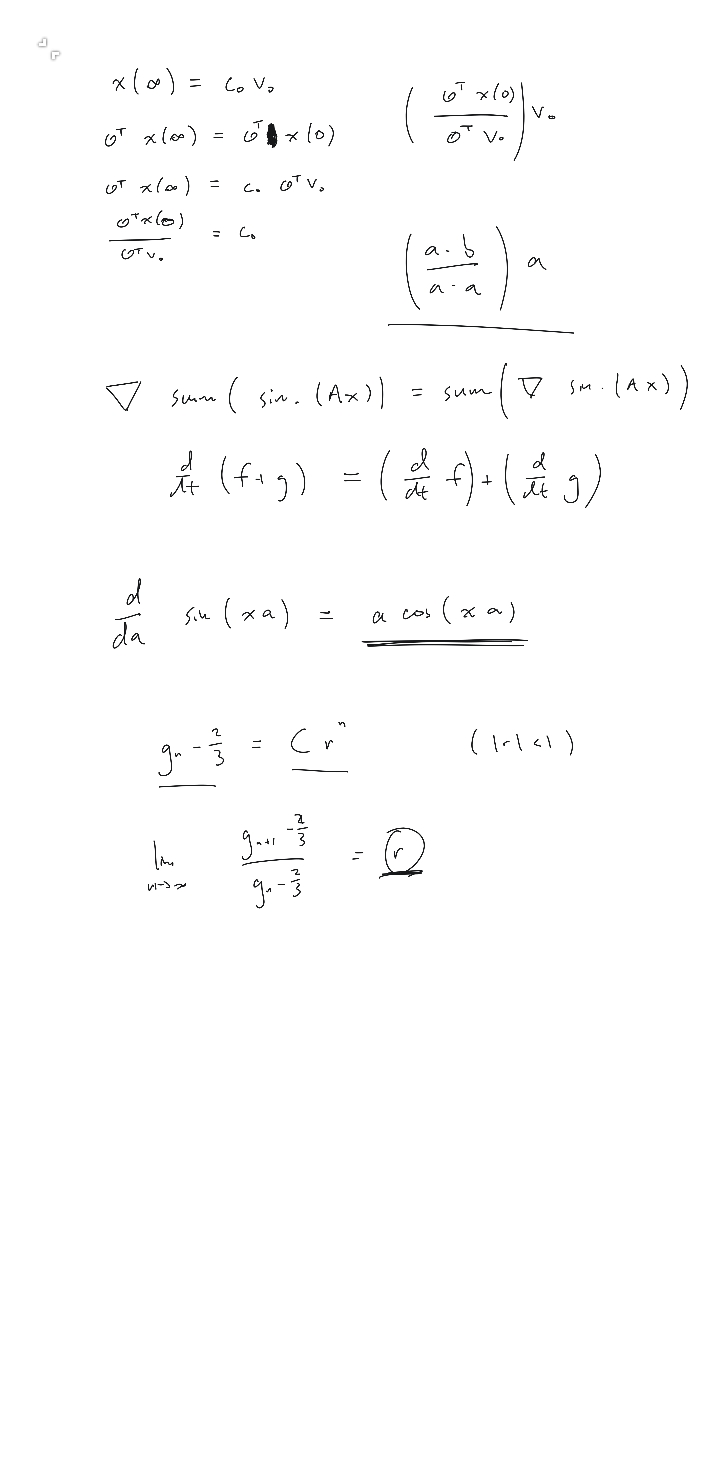 x(∞) = c₀ v₀
σᵀ x(∞) = σᵀ x(0)
σᵀ x(∞) = c₀ σᵀ v₀
σᵀx(∞) / σᵀv₀ = c₀
(σᵀ x(0) / σᵀ v₀) v₀
(a·b / a·a) a
∇ sum(sin.(Ax)) = sum(∇ sin.(Ax))
d/dt (f+g) = (d/dt f) + (d/dt g)
d/da sin(xa) = a cos(xa)
gₙ - 2/3 = C rⁿ (|r|<1)
lim n→∞ gₙ₊₁ - 2/3 / gₙ - 2/3 = r